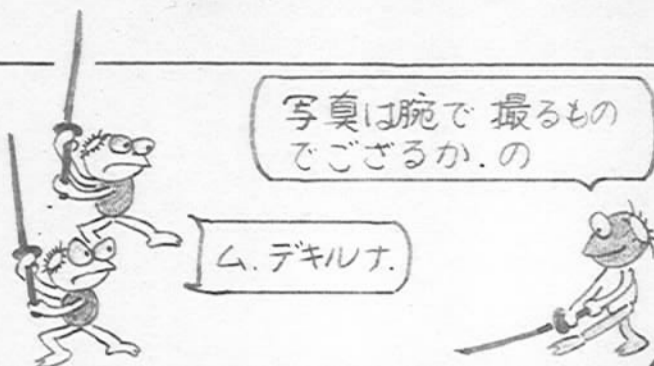 写真は腕で 撮るもの
でござるか.の
ム.デキルナ.